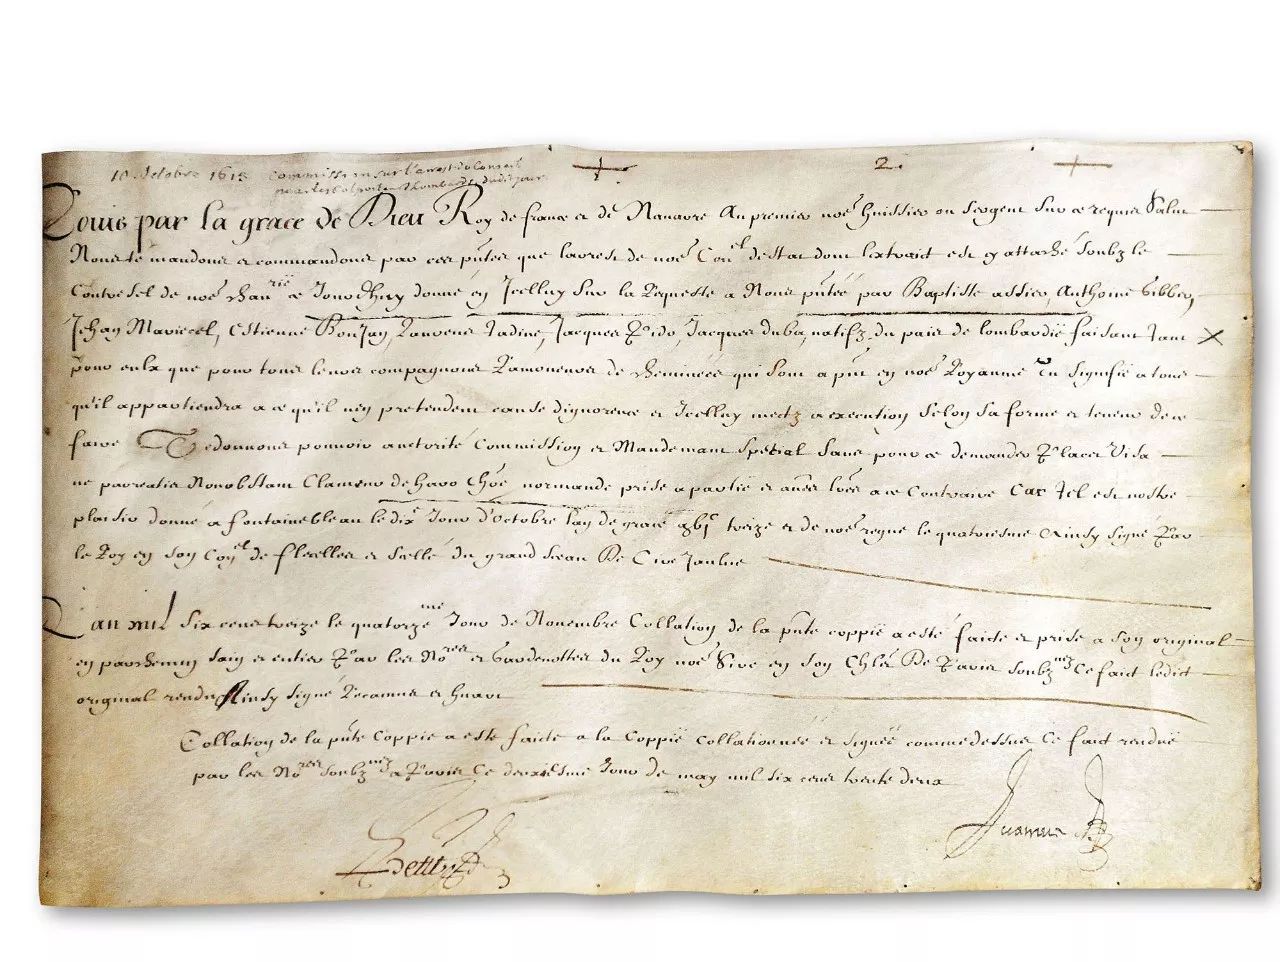 10 Octobre 1613 Commission sur l'arrest du Conseil
2.
Louis par la grace de Dieu Roy de france et de Nanarre Au premier nore huissier ou sergent sur ce requis Salut
Nous te mandons et commandons par ces pntes que larrest de noe Conel destat dont lextrait est cy attaché soubz le
Contresel de noe chan rie ce Jourdhuy donné en Icelluy sur la Requeste a Nous pntée par Baptiste assier, Anthoine Gibber,
Jehan Mariecel, Estienne Bonjan, Laurens Tadine, Jacques Jacques Duba, natifz du pais de lombardie faisant tant
pour eulx que pour tous leurs compagnons Ramoneurs de cheminées qui sont a pnt en noe Royaume Tu signiffie a tous
qu'il appartiendra a ce qu'il nen pretendent cause dignorence et Icelluy mectz a execution selon sa forme et teneur de ce
faire Te donnons pouvoir auctorité Commission et Mandemant special Sans pour ce demander Placet Visa
ne pareatis Nonobstant Clameur de haro Chre normande prise a partie et aues lres a ce Contraire Car Tel est nostre
plaisir donné a fontainebleau le dixe Jour d'Octobre lan de grace treize et de noe regne le quatriesme Ainsy signé Par
le Roy en son Conel de flecelles et scellé du grand sceau De Cire Jaulne
Lan mil six cens treize le quatorzeme Jour de Novembre Collation de la pnte coppie a esté faicte et prise a son original
en parchemin sain et entier Par les Nores et Gardenottes du Roy noe Sire en son Chlet De Paris soubznez Ce faict ledict
original rendu Ainsy signé et huart
Collation de la pnte Coppie a este faicte a la Coppie collationnée et signée comme dessus Ce faict rendue
par les Nores soubznez a Paris Ce deuxiesme Jour de may mil six cens trente deux